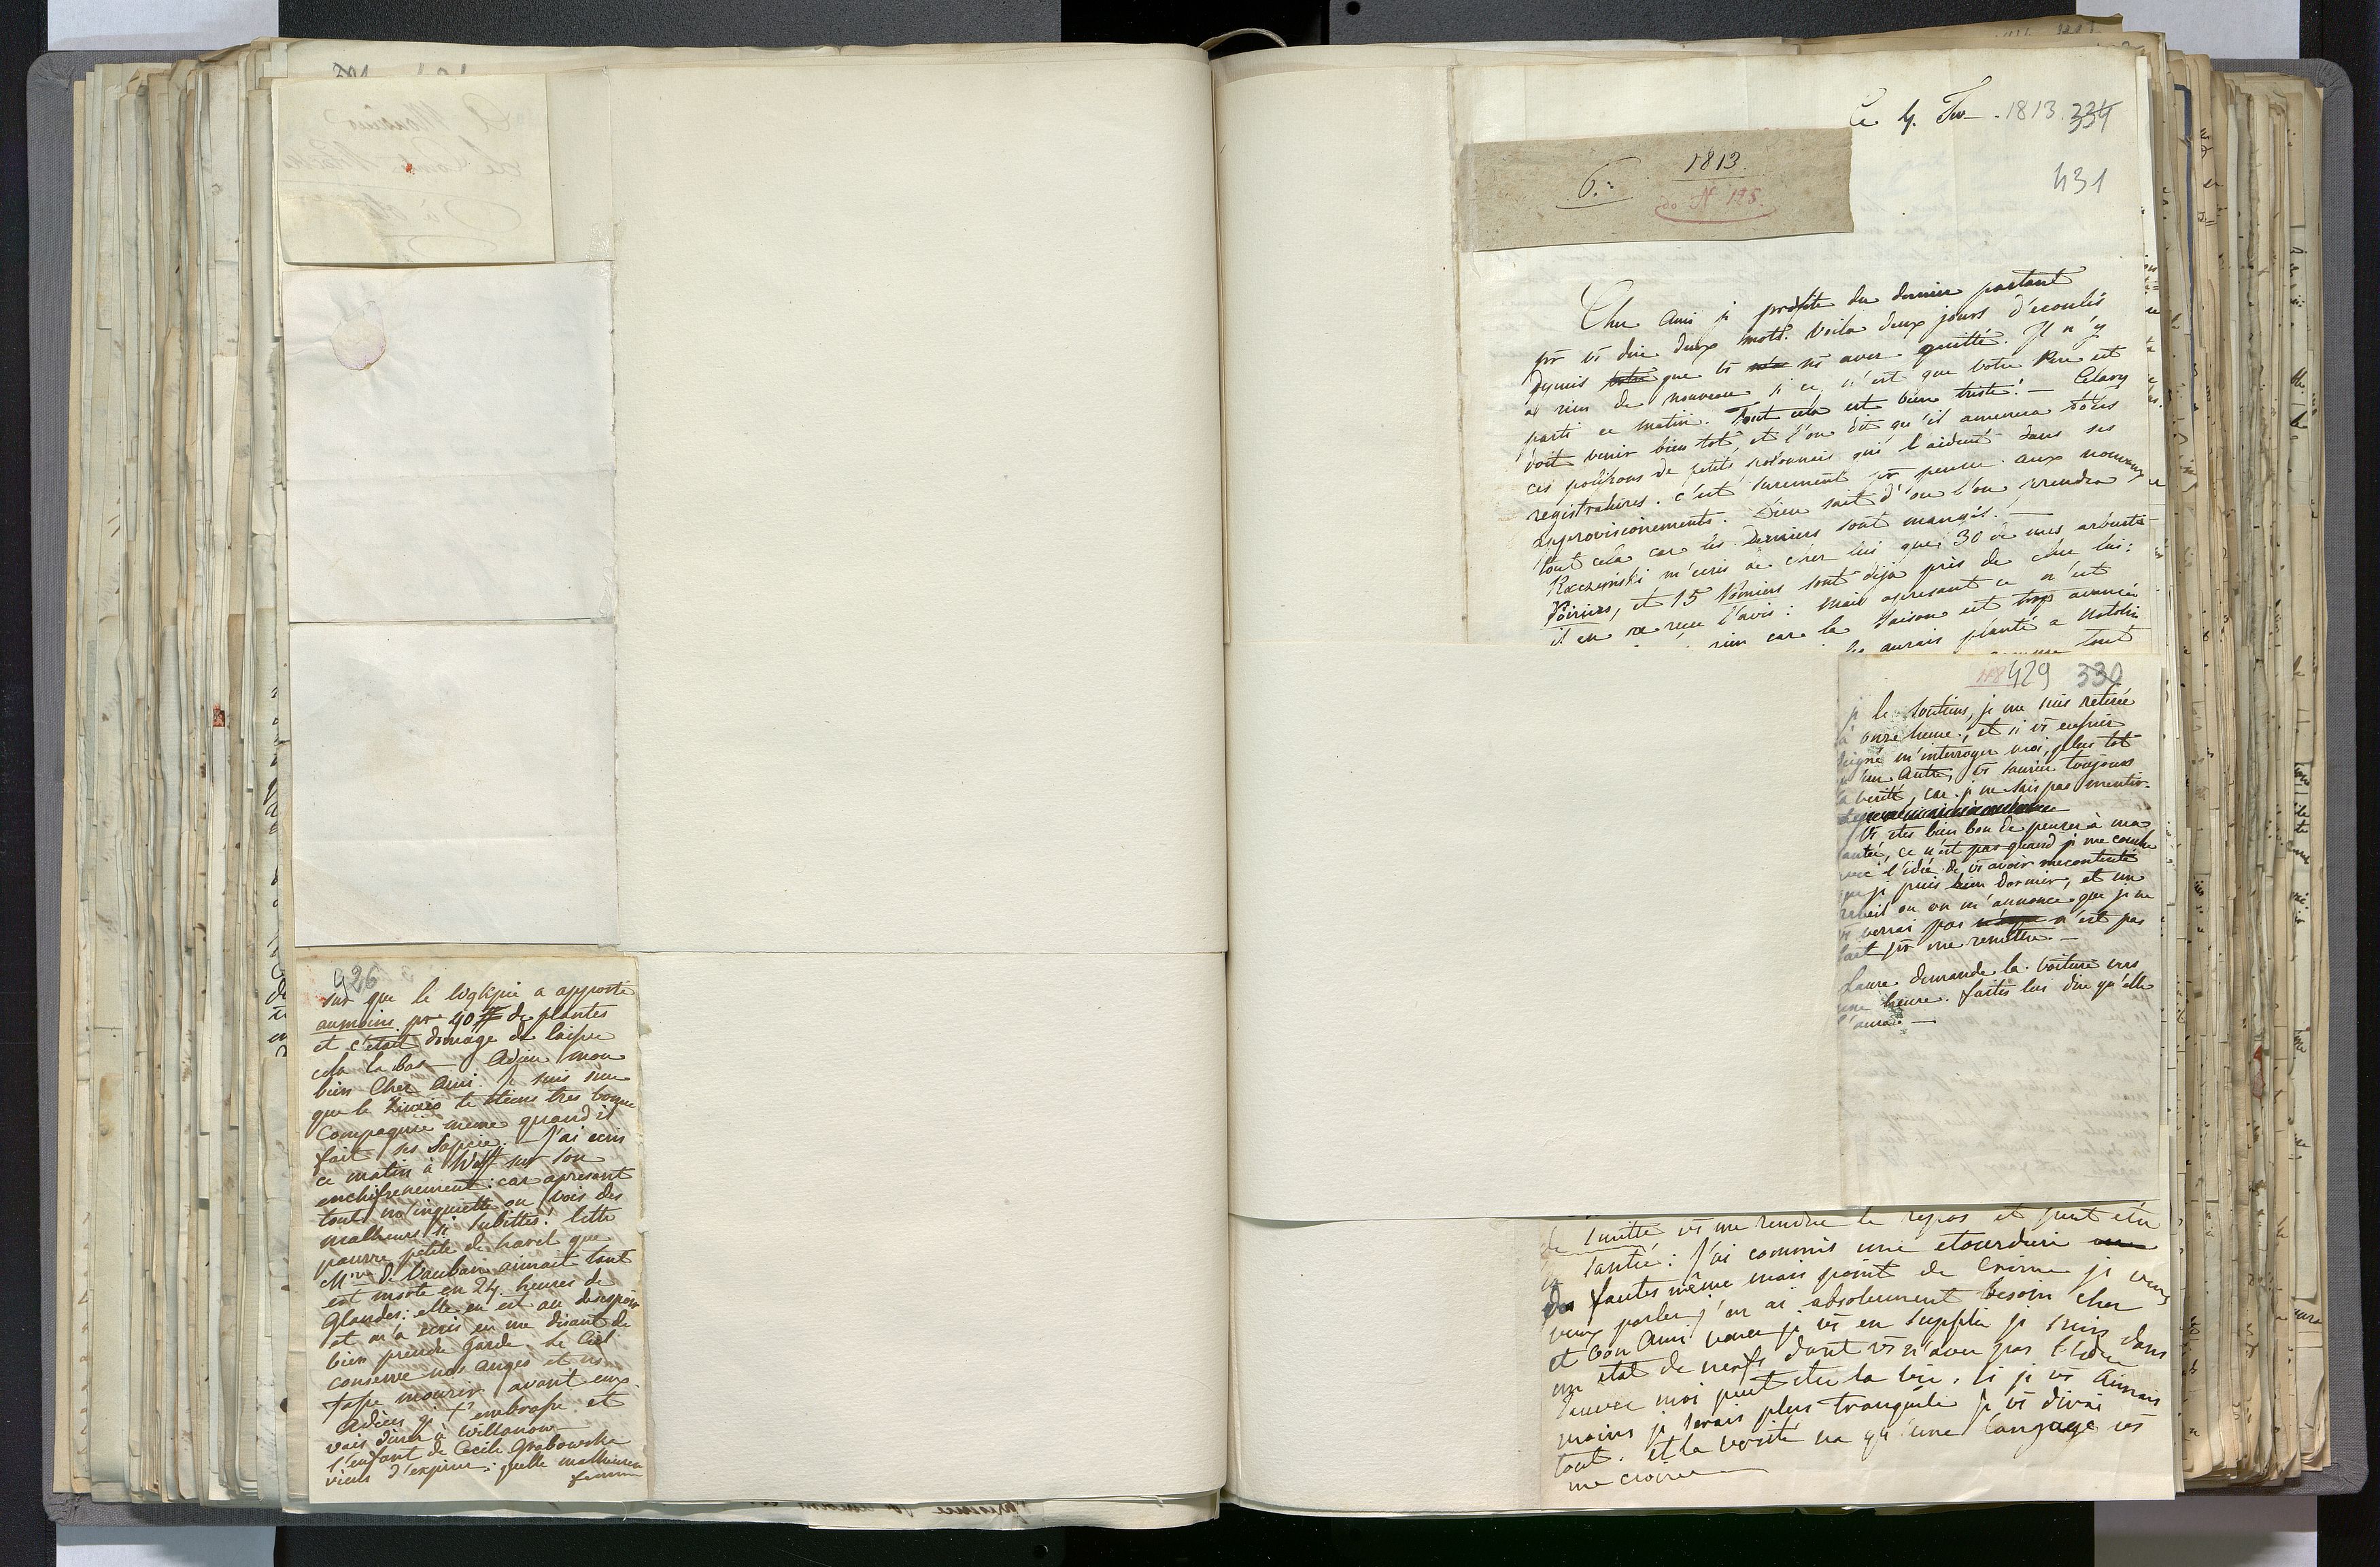 426
sur que le
aumoins pr 40 # de plantes
et c'étoit domage de laisser
cela la bas — Adieu mon
bien Cher Ami. Je suis sure
que le te tiens tres bonne
Compagnie meme quand il
fait ses J'ai ecris
ce matin à Wolff sur son
enchifrenement: car apresent
tout m'inquiette on vois des
malheurs si subittes! Cette
pauvre petite de que
Mme de Vauban aimait tant
est morte en 24 heures de
Glandes: elle en est au desespoir
et m'a ecris en me disant de
bien prendre garde. Le Ciel
conserve nos anges et ns
fasse mourir avant eux.
Adieu je t'embrasse et
vais diner à Willanow
l'enfant de Cecile Grabowska
viens d'expirer: quelle malheureuse
femme
Ce 4. 1813. 334
431
6.
1813.
do N 128.
Cher Ami je profite du dernier partant
pr vs dire deux mots. Voila deux jours d'ecoulés
depuis que vs ns avez quitté. Il n'y
a rien de nouveau si ce n'est que votre Pere est
parti ce matin. Tout cela est bien triste! —
doit venir bien tot et l'on dit qu'il amenera tous
ces polissons de petits polonais qui l'aident dans ses
registratures. c'est surement pr penser aux nouveaux
approvisionements. Dieu sait d'ou l'on prendra
tout cela car les derniers sont mangés. —
m'ecris de chez lui que 30 de mes arbustes
Poiriers, et 15 sont déja pris de chez lui:
il en a recu l'avis: mais apresent ce n'est
rien car la saison est trop avancée
les aurais planté a Natolin
tout
118 429 330
je le soutiens, je me suis retirée
à onze heure, et si vs eussiez
daigné m'interroger moi, plus tot
qu'un Autre, vs sauriez toujours
la verité, car je ne sais pas mentir.
Vs etes bien bon de penser à ma
santé, ce n'est pas quand je me couche
avec l'idée de vs avoir mecontenté
que je puis bien dormir, et un
reveil ou on m'annonce que je ne
vs verrai pas n'est pas
fait pr me remettre. —
Laure demande la voiture vers
une heure. faites lui dire qu'elle
l'aura —
de suitte vs me rendre le repos et peut etre
la santé: J'ai commis une etourderie
des fautes même mais point de Crime je veux
vous parler j'en ai absolument besoin cher
et bon Ami venez je vs en supplie je suis dans
un etat de nerfs dont vs n'avez pas l'idée
Sauvez moi peut etre la vie, si je vs Aimais
moins je serais plus tranquile je vs dirai
tout. et la verité na qu'une langage vs
me croirez